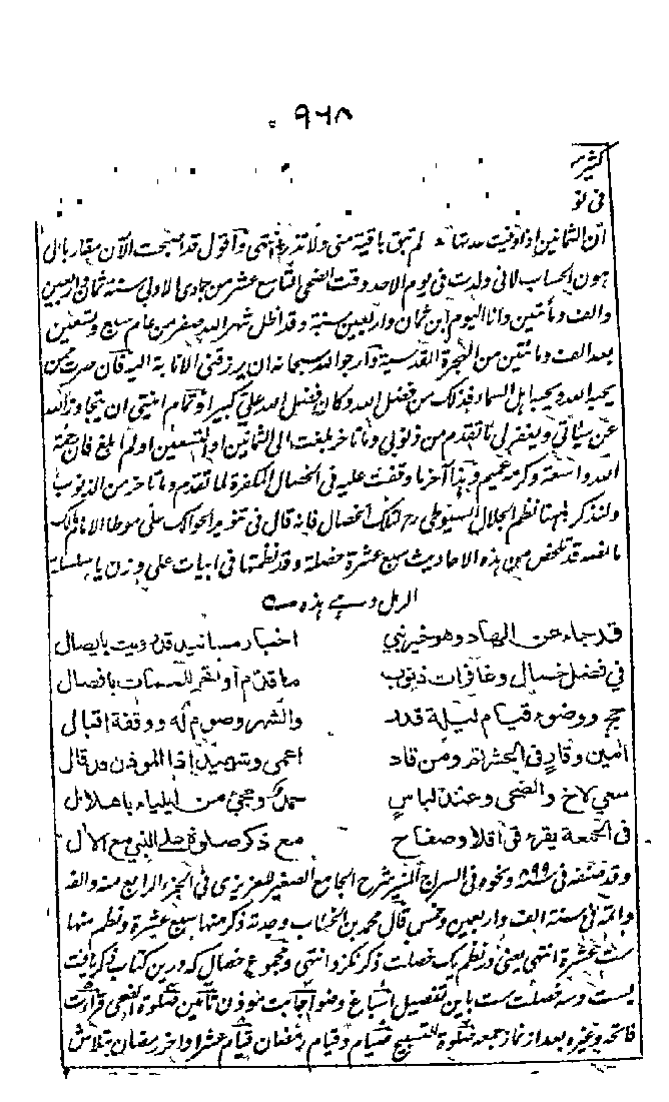 ۹۶۸
کثیر
فی
ان الثمانین اذا وفیت عدتها لم تبق باقیة منی ولا تذر انتهی واقول قد اصبحت الآن مقاربا لی
بهون الحساب لانی ولدت فی یوم الاحد وقت الضحی التاسع عشر من جمادی الاولی سنة ثمان واربعین
والف ومأتین وانا الیوم ابن ثمان واربعین سنة وقد اظل شهر الله صفر من عام سبع وتسعین
بعد الف ومأتین من الهجرة القدسیة وارجو الله سبحانه ان یرزقنی الانابة الیه فان صرت ممن
یحبه الله ویحبه اهل السماء فذلک من فضل الله وکان فضل الله علی کبیرا وتمام امنیتی ان یتجاوز الله
عن سیئاتی ویغفر لی ما تقدم من ذنوبی وما تاخر بلغت الی الثمانین او التسعین او لم ابلغ فان رحمة
الله واسعة وکرمه عمیم وهذا آخر ما وقفت علیه فی الخصال المکفرة لما تقدم وما تاخر من الذنوب
ولنذکر ههنا نظم الجلال السیوطی رح لتلک الخصال فانه قال فی تنویر الحوالک علی موطا الامام مالک
ما لفظه قد تلخص من هذه الاحادیث سبع عشرة خصلة وقد نظمتها فی ابیات علی وزن یا سلسلة
الرمل وهی هذه
قد جاء عن الهاد وهو خیر نبی اخبار مسانید قد رویت بایصال
فی فضل خصال وغافرات ذنوب ما قدم او اخر للممات بافضال
حج ووضوء قیام لیلة قدر والشهر وصوم له ووقفة اقبال
آمین وقار فی الحشر ثم ومن قاد اعمی وشهید اذا المؤذن قد قال
سعی لاخ والضحی وعند لباس حمد ومجئ من ایلیاء باهلال
فی الجمعة یقرء قواقلا وصفاح مع ذکر صلوة علی النبی مع الآل
وقد صنفه فی سنة ۸۹۹ ونحوه فی السراج المنیر شرح الجامع الصغیر للعزیزی فی الجزء الرابع منه والفه
فی سنة الف واربعین وخمس قال محمد بن الخطاب وجدته ذکر منها سبع عشرة ونظم منها
ست عشرة انتهی یعنی در نظم یک خصلت ذکر نکرد انتهی ومجموع خصال که درین کتاب ذکر یافت
بست وسه خصلت ست باین تفصیل اسباغ وضو اجابت مؤذن تأمین صلوة الضحی قرأت
فاتحه وغیره بعد از نماز جمعه صلوة التسبیح صیام وقیام رمضان قیام عشر اواخر رمضان بتلاش